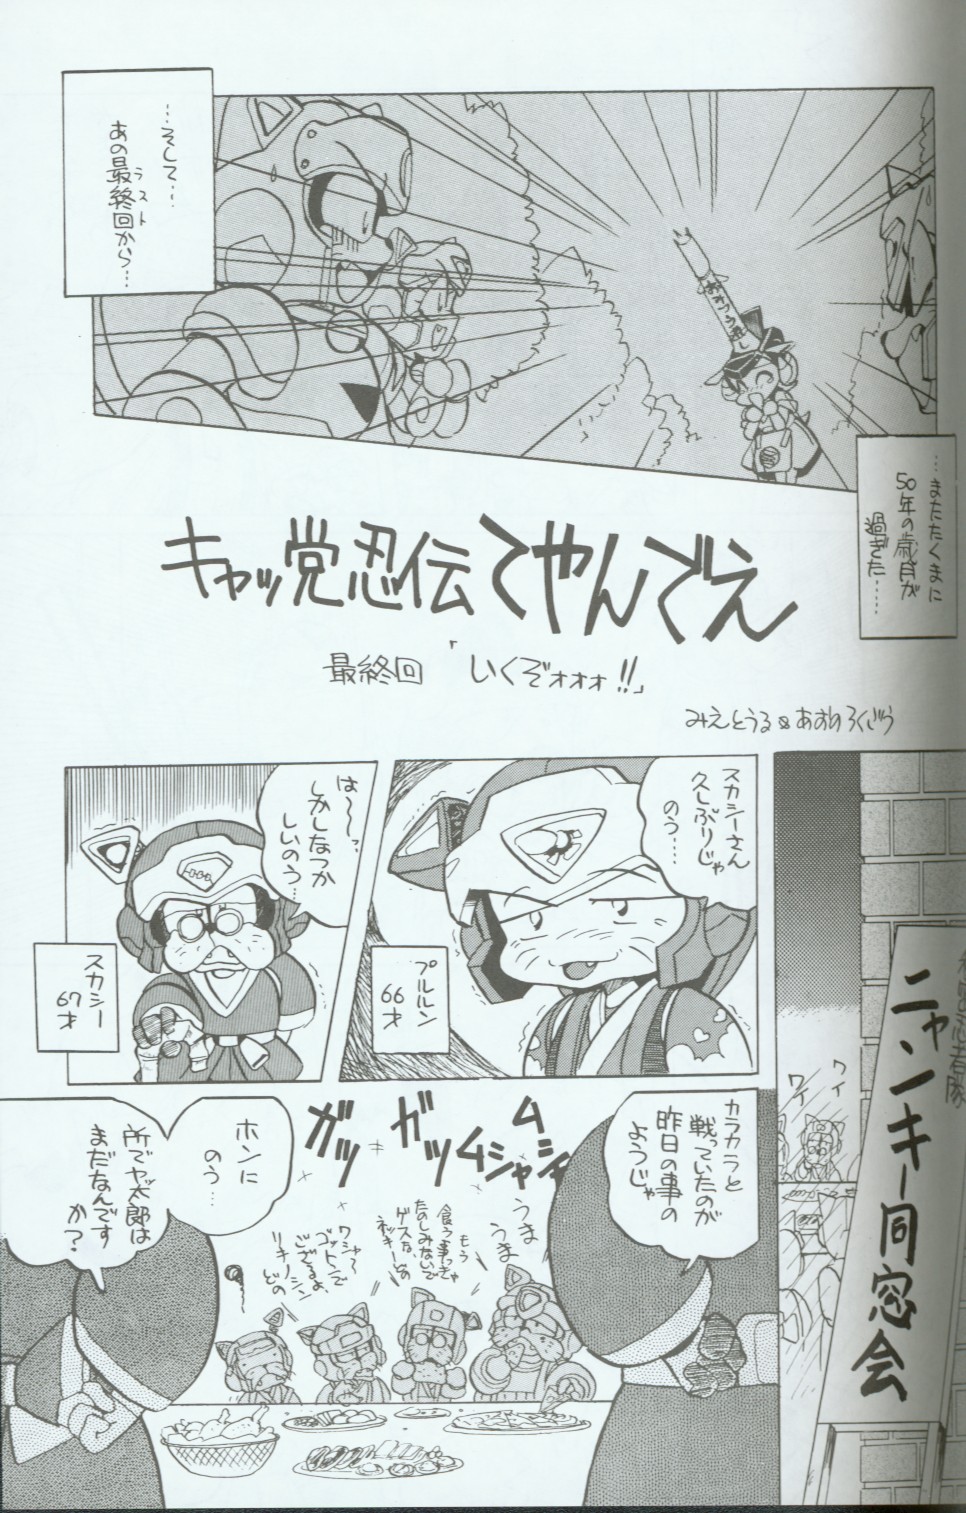 …そして…
あの最終回から…
ラスト
おみつう愛し
…またたくまに
50年の歳月が
過ぎた……
キャッ党忍伝てやんでえ
最終回「いくぞォォォ!!」
みえとうる&あおの ろくごう
ニャンキー同窓会
ワイ
ワイ
スカシーさん
久しぶりじゃ
のう……
プルルン
66才
は〜〜っ
しかしなつか
しいのう…
スカシー
67才
カラカラと
戦っていたのが
昨日の事の
ようじゃ
ムシャムシャ
ガッ
ガッ
うま
うま
もう
食う事っきゃ
たのしみないで
ゲスな、
ネッキー
ワシャ〜
ゴットンで
ござるよ、
リキノシン
どの
ホンに
のう…
所でヤッ太郎は
まだなんです
か?